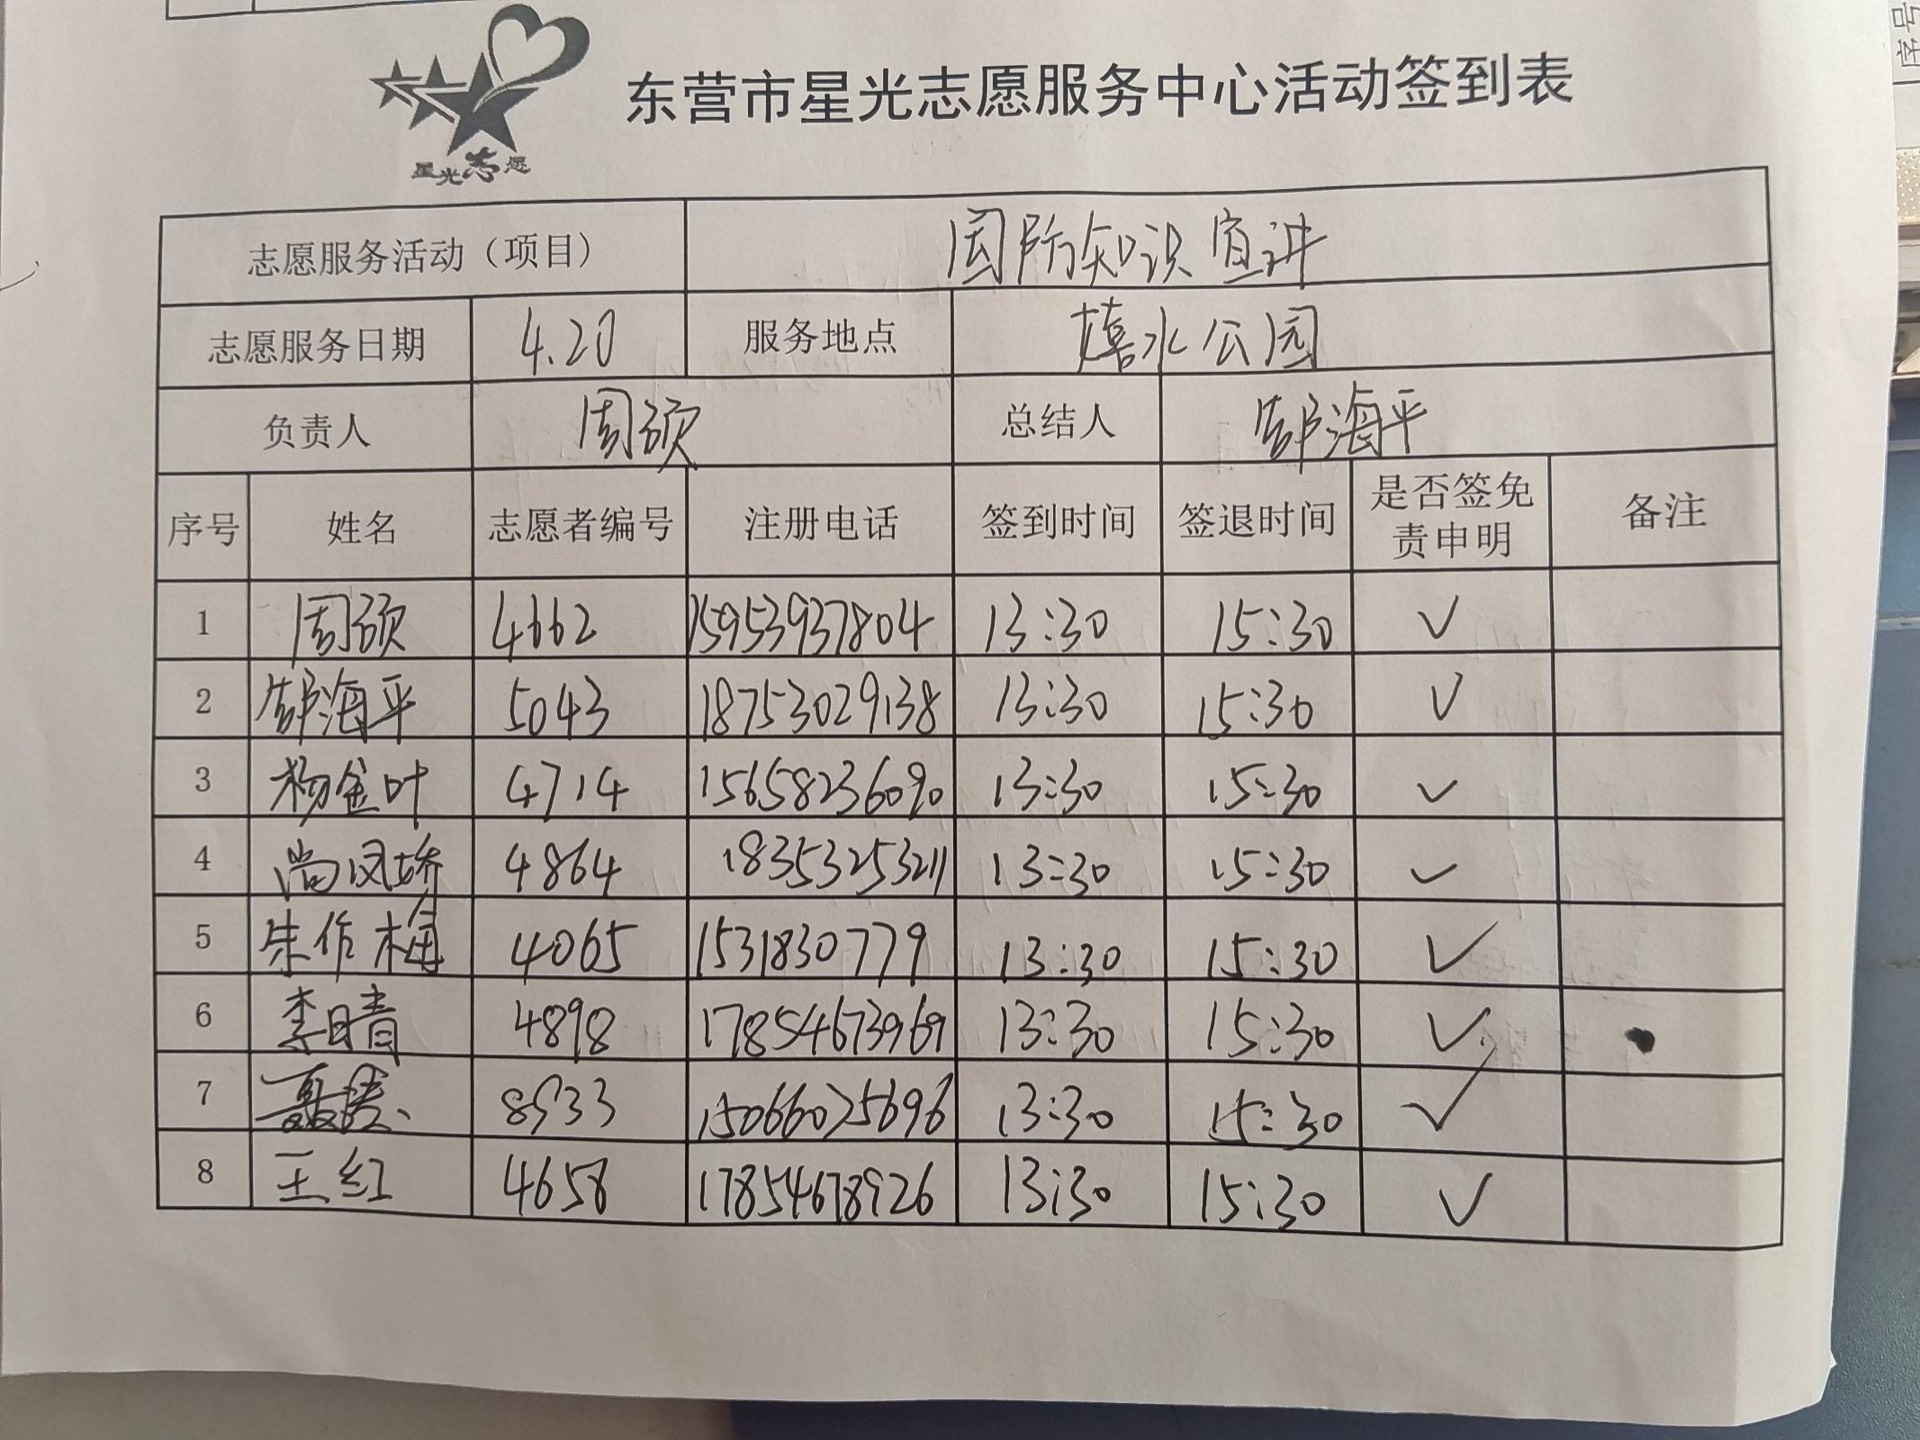 序号
星光志愿
东营市星光志愿服务中心活动签到表
志愿服务活动（项目） 国防知识宣讲
志愿服务日期 4.20 服务地点 嬉水公园
负责人 周硕 总结人 郭海平
序号 姓名 志愿者编号 注册电话 签到时间 签退时间 是否签免责申明 备注
1 周硕 4662 15953937804 13:30 15:30 ✓
2 郭海平 5043 18753029138 13:30 15:30 ✓
3 杨金叶 4714 15658236090 13:30 15:30 ✓
4 尚凤娇 4864 18353253211 13:30 15:30 ✓
5 朱作梅 4065 1531830779 13:30 15:30 ✓
6 李晴 4898 17854673969 13:30 15:30 ✓
7 8933 15066075696 13:30 15:30 ✓
8 王红 4658 17854678926 13:30 15:30 ✓